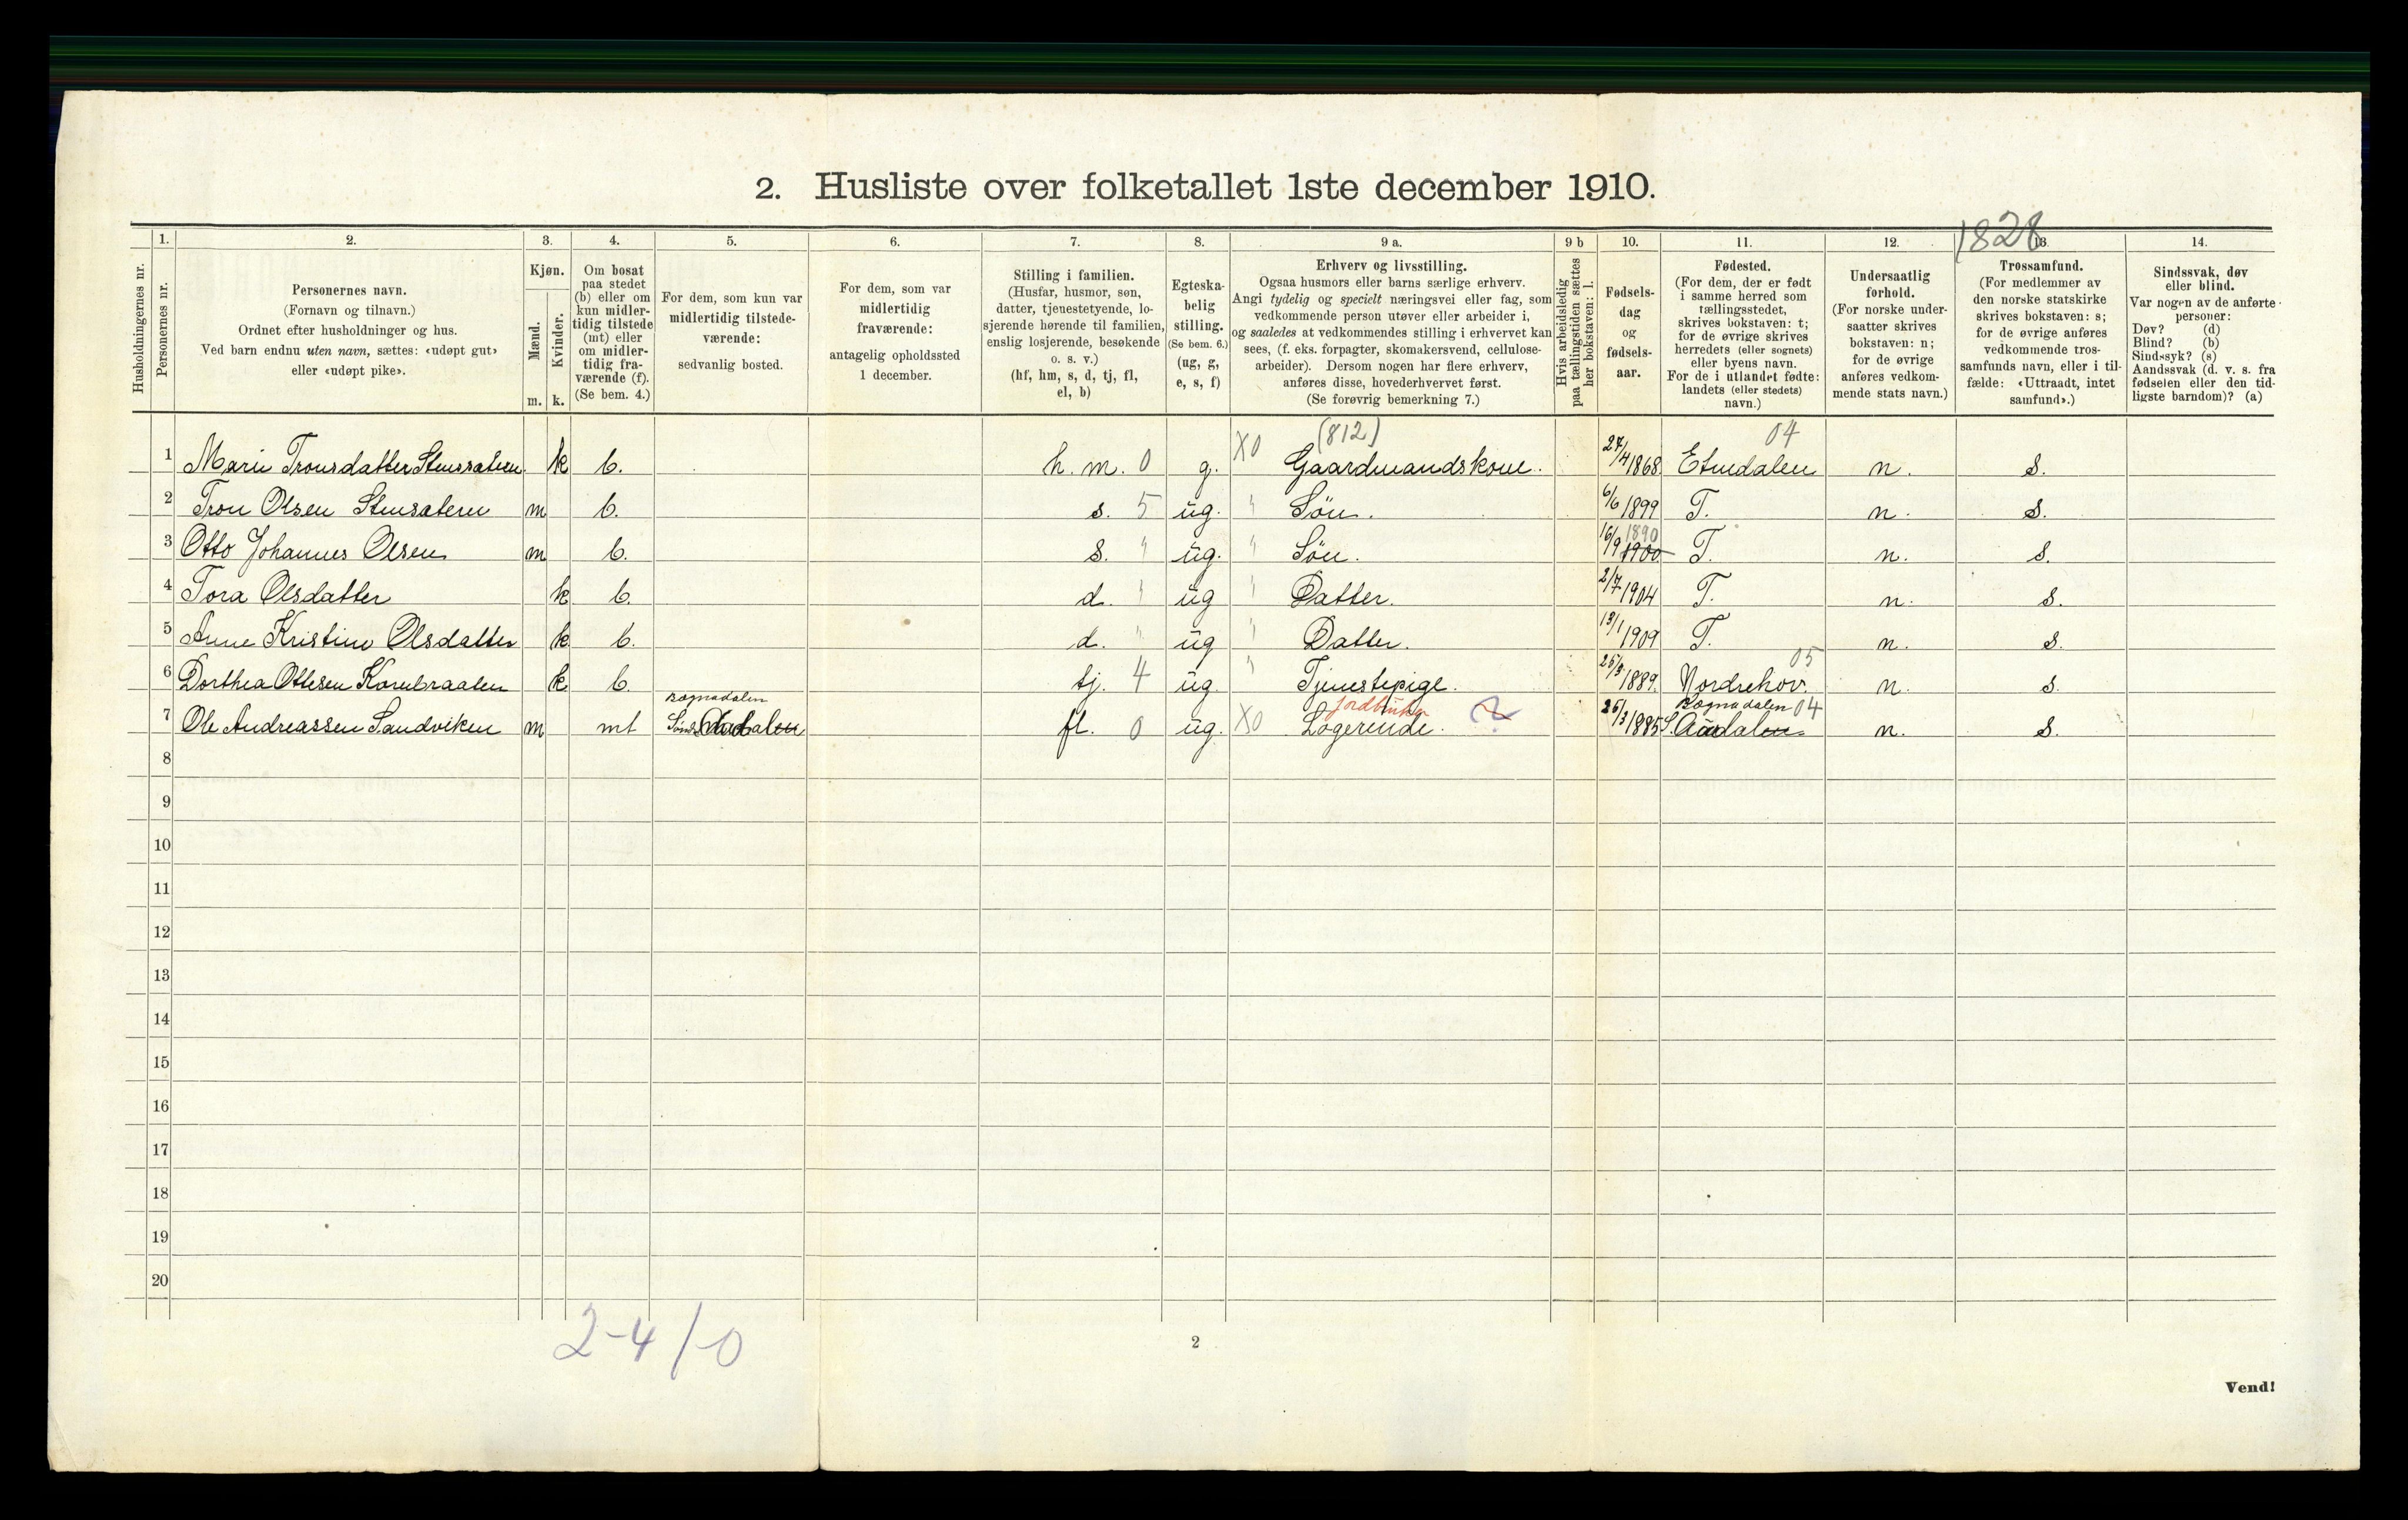 2. Husliste over folketallet 1ste december 1910.
1828
Husholdningernes nr.
1.
Personernes nr.
2.
Personernes navn.
(Fornavn og tilnavn.)
Ordnet efter husholdninger og hus.
Ved barn endnu uten navn, sættes: «udøpt gut»
eller «udøpt pike».
3.
Kjøn.
Mænd.
Kvinder.
m. k.
4.
Om bosat
paa stedet
(b) eller om
kun midler-
tidig tilstede
(mt) eller
om midler-
tidig fra-
værende (f).
(Se bem. 4.)
5.
For dem, som kun var
midlertidig tilstede-
værende:
sedvanlig bosted.
6.
For dem, som var
midlertidig
fraværende:
antagelig opholdssted
1 december.
7.
Stilling i familien.
(Husfar, husmor, søn,
datter, tjenestetyende, lo-
sjerende hørende til familien,
enslig losjerende, besøkende
o. s. v.)
(hf, hm, s, d, tj, fl,
el, b)
8.
Egteska-
belig
stilling.
(Se bem. 6.)
(ug, g,
e, s, f)
9 a.
Erhverv og livsstilling.
Ogsaa husmors eller barns særlige erhverv.
Angi tydelig og specielt næringsvei eller fag, som
vedkommende person utøver eller arbeider i,
og saaledes at vedkommendes stilling i erhvervet kan
sees, (f. eks. forpagter, skomakersvend, cellulose-
arbeider). Dersom nogen har flere erhverv,
anføres disse, hovederhvervet først.
(Se forøvrig bemerkning 7.)
9 b
Hvis arbeidsledig
paa tællingstiden sættes
her bokstaven: l.
10.
Fødsels-
dag
og
fødsels-
aar.
11.
Fødested.
(For dem, der er født
i samme herred som
tællingsstedet,
skrives bokstaven: t;
for de øvrige skrives
herredets (eller sognets)
eller byens navn.
For de i utlandet fødte:
landets (eller stedets)
navn.)
12.
Undersaatlig
forhold.
(For norske under-
saatter skrives
bokstaven: n;
for de øvrige
anføres vedkom-
mende stats navn.)
13.
Trossamfund.
(For medlemmer av
den norske statskirke
skrives bokstaven: s;
for de øvrige anføres
vedkommende tros-
samfunds navn, eller i til-
fælde: «Uttraadt, intet
samfund».)
14.
Sindssvak, døv
eller blind.
Var nogen av de anførte
personer:
Døv? (d)
Blind? (b)
Sindssyk? (s)
Aandssvak (d. v. s. fra
fødselen eller den tid-
ligste barndom)? (a)
(812) 04
1 Marie Tronsdatter Stensæteren k b. h. m. 0 g. X0 Gaardmandskone. 27/4 1868 Etnedalen n. s.
2 Tron Olsen Stensæteren m b. s. 5 ug. " Søn. 6/6 1899 T. n. s.
1890
3 Otto Johannes Olsen m b. s. " ug. " Søn. 16/9 1900 T. n. s.
4 Tora Olsdatter k b. d. " ug " Datter. 2/7 1904 T. n. s.
5 Anne Kristine Olsdatter k b. d. " ug " Datter. 13/1 1909 T. n. s.
05
6 Dorthea Ottesen Kornbraaten k b. tj. 4 ug. " Tjenestepige. 25/5 1889. Nordrehov. n. s.
Bagnadalen jordbruker Bagnadalen 04
7 Ole Andreassen Sandviken m mt Sønd. Aadalen fl. 0 ug. X0 Logerende. 25/3 1885 S. Aadalen n. s.
8
9
10
11
12
13
14
15
16
17
18
19
20
2-4 / 0
2
Vend!